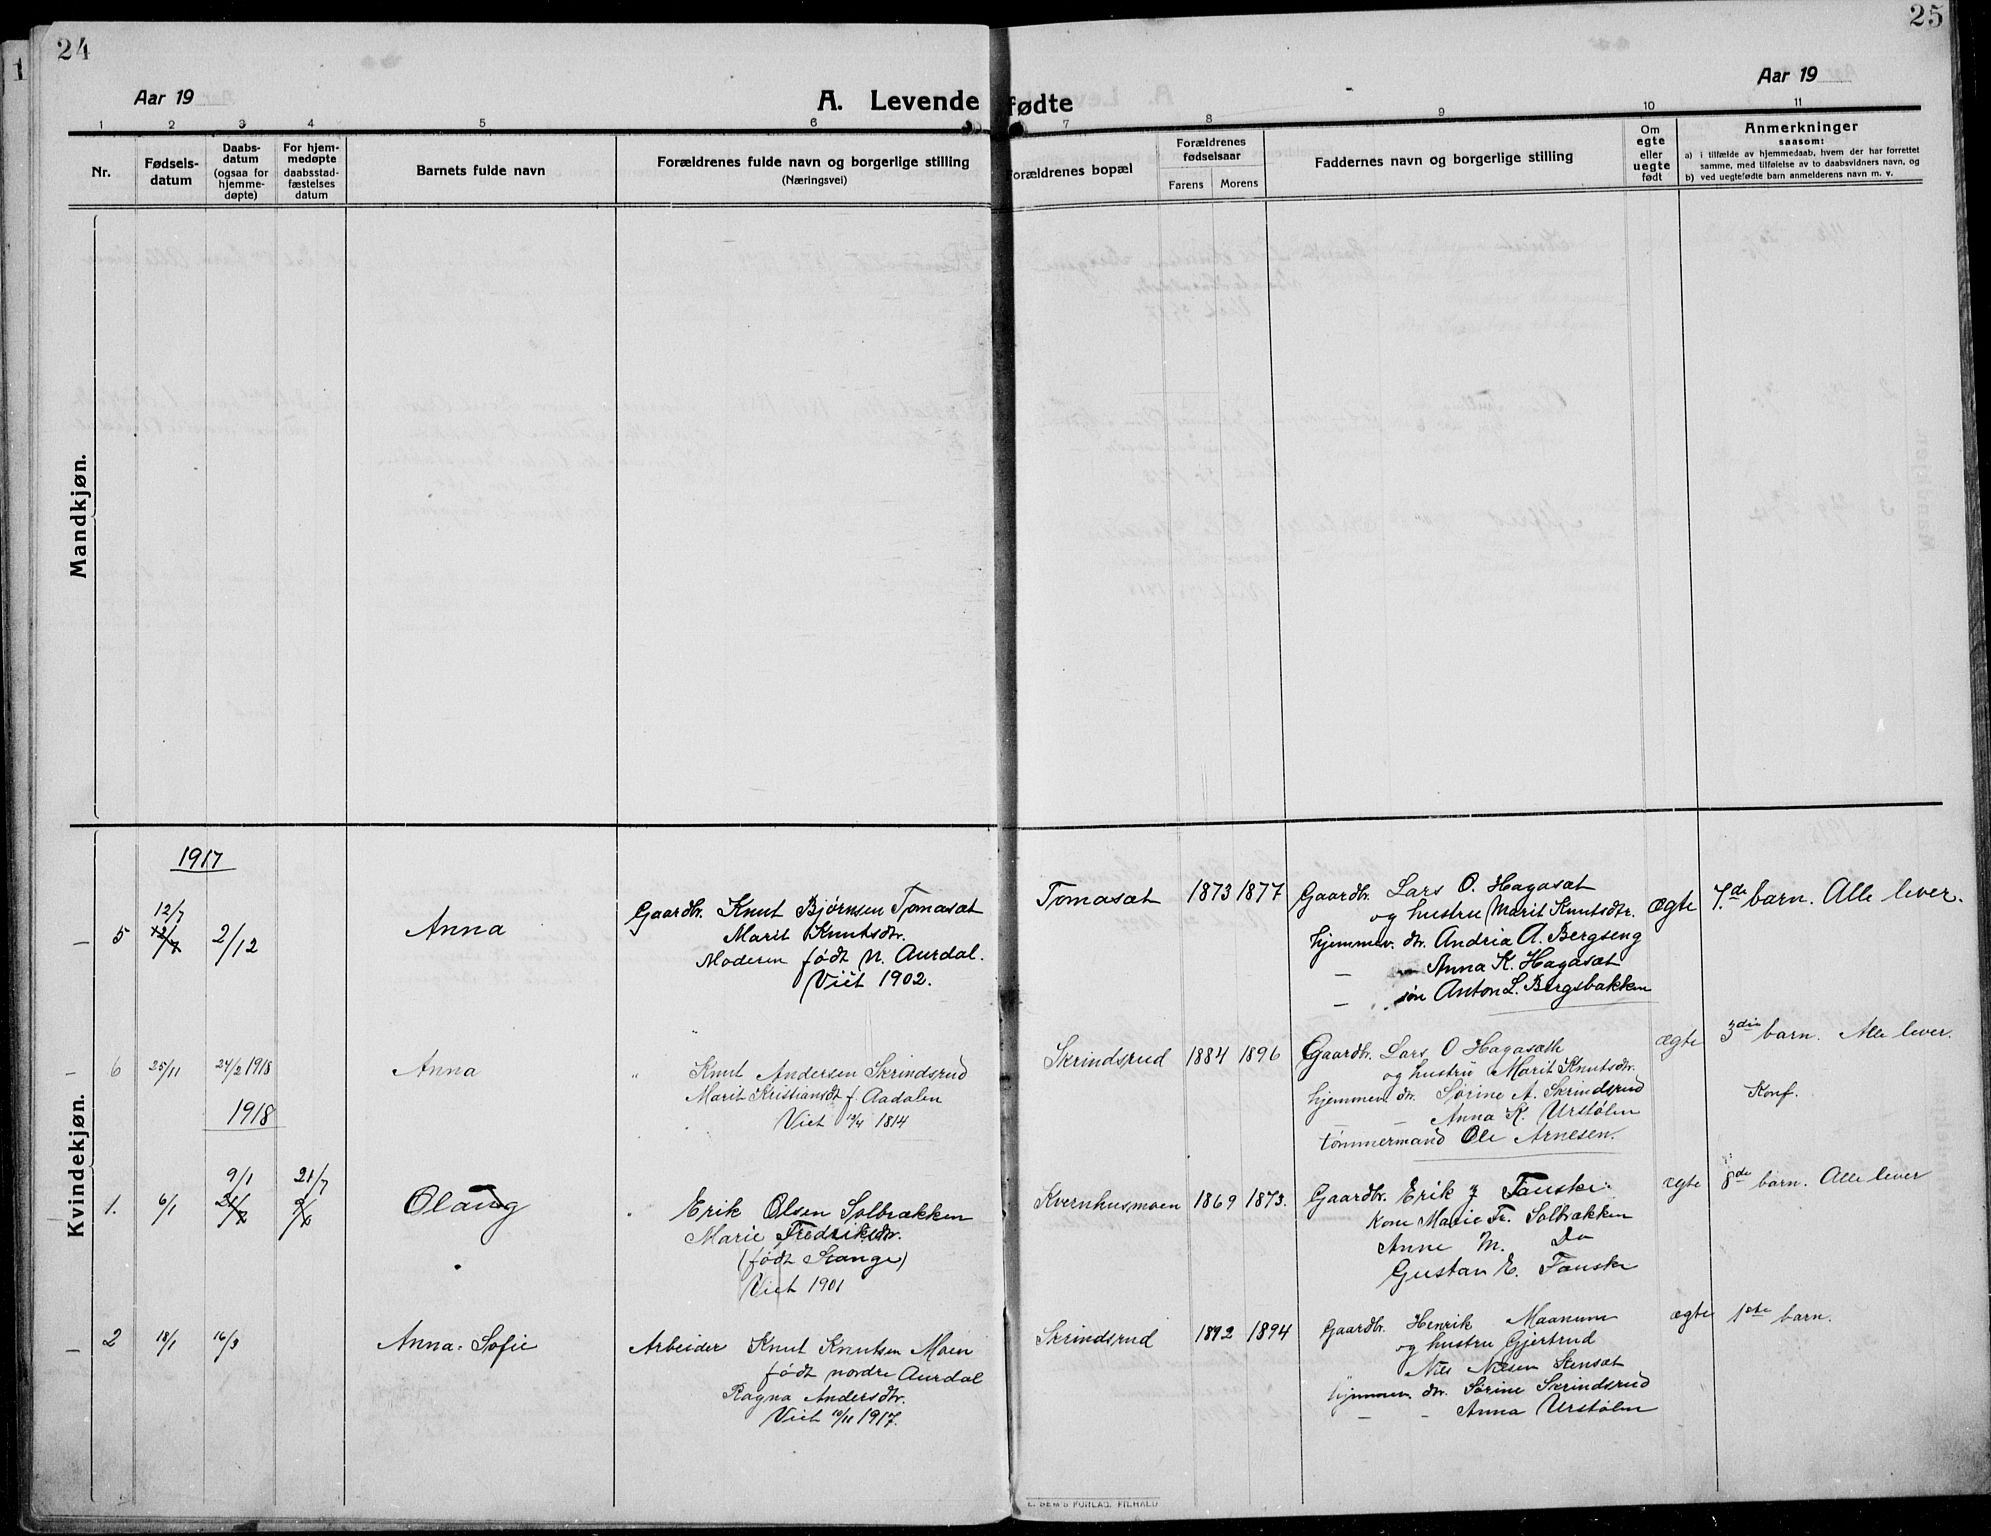 24
25
1
Aar 19
A. Levende fødte
Aar 19
1 2 3 4 5 6 7 8 9 10 11
Nr.
Fødsels-
datum
Daabs-
datum
(ogsaa for
hjemme-
døpte)
For hjem-
medøpte
daabsstad-
fæstelses
datum
Barnets fulde navn
Forældrenes fulde navn og borgerlige stilling
(Næringsvei)
Forældrenes bopæl
Forældrenes
fødselsaar
Farens Morens
Faddernes navn og borgerlige stilling
Om
egte
eller
uegte
født
Anmerkninger
saasom:
a) i tilfælde av hjemmedaab, hvem der har forrettet
samme, med tilføielse av to daabsvidners navn, og
b) ved uegtefødte barn anmelderens navn m. v.
Mandkjøn.
Kvindekjøn.
1917
– 5 12/7 2/12 Anna
Gaardbr. Knut Bjørnsen Tomasæt
Marit Knutsdtr.
Moderen født N. Aurdal.
Viet 1902.
Tomasæt 1873 1877
Gaardbr. Lars O. Hagasæt
og hustru Marit Knutsdtr.
hjemmev. dtr. Andria A. Bergseng
– – Anna K. Hagasæt
– søn Anton L. Bergsbakken
ægte
7.de barn. Alle lever.
– 6 25/11 24/2 1918 Anna
" Knut Andersen Skrindsrud
Marit Kristiansdt f. Aadalen
Viet 12/4 1814
Skrindsrud 1884 1896
Gaardbr. Lars O Hagasæth
og hustru Marit Knutsdtr.
hjemmev. dtr. Sørine A. Skrindsrud
– Anna K. Urstølen
tømmermand Ole Arnesen.
ægte
3die barn. Alle lever.
Konf.
1918
1. 6/1 9/1 21/7 Olaug
" Erik Olsen Solbrækken
Marie Fredriksdtr.
(født Stange)
Viet 1901
Kvernhusmoen 1869 1873.
Gaardbr. Erik J Fauske
Kone Marie Fr. Solbrækken
Anne M. Do
Gustav E. Fauske
ægte
8de barn. Alle lever
– 2 18/1 16/3 Anna Sofie
Arbeider Knut Knutsen Moen
født nordre Aurdal
Ragna Andersdtr.
Viet 10/11 1917.
Skrindsrud 1892 1894
Gaardbr. Henrik Maanum
og hustru Gjertrud
Nils Nilsen Stensæt
hjemmev. dtr. Sørine Skrindsrud
– – Anna Urstølen
ægte
1ste barn.